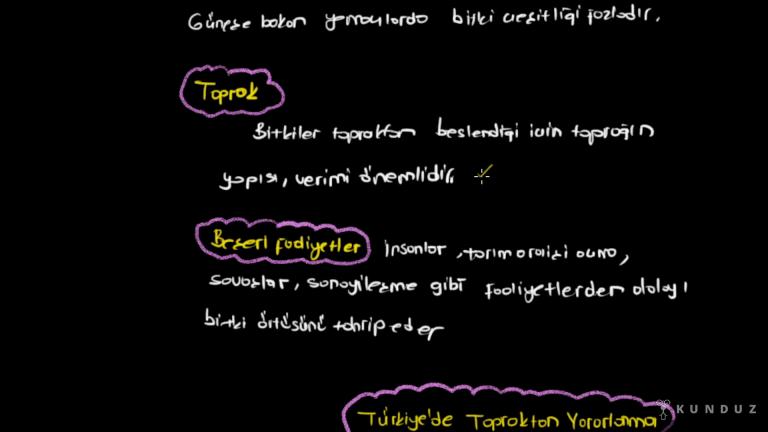 Güneşe bakan yamaçlarda bitki çeşitliliği fazladır.
Toprak
Bitkiler topraktan beslendiği için toprağın
yapısı, verimi önemlidir.
Beşeri faaliyetler insanlar, tarım arazisi açma,
savaşlar, sanayileşme gibi faaliyetlerden dolayı
bitki örtüsünü tahrip eder
Türkiye'de Topraktan Yararlanma
KUNDUZ